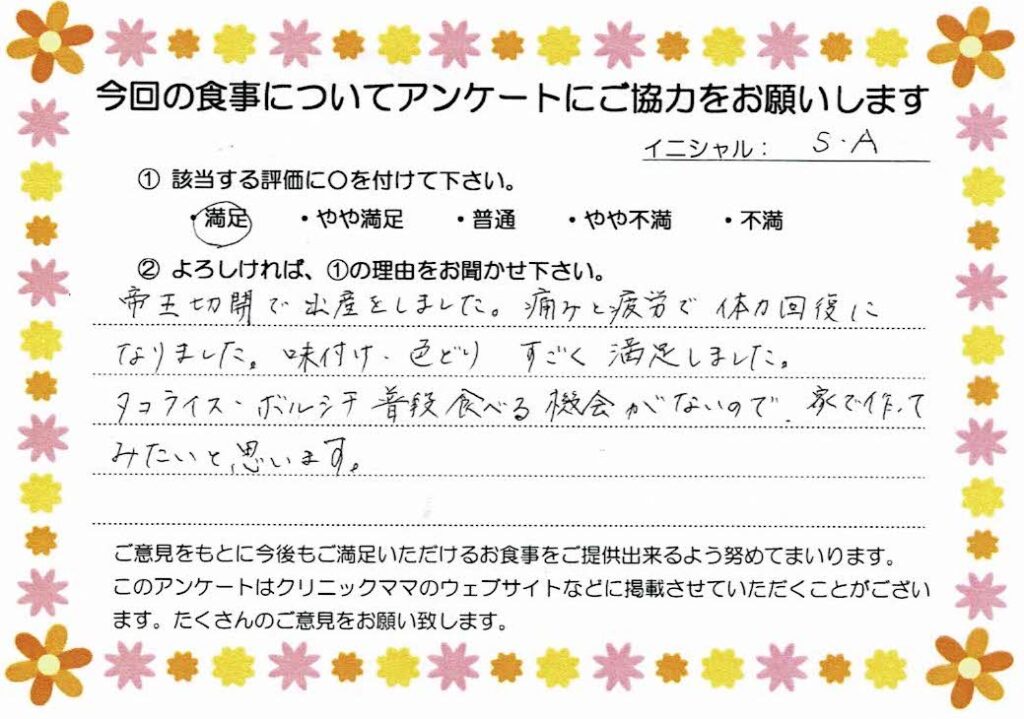 今回の食事についてアンケートにご協力をお願いします
イニシャル： S・A
① 該当する評価に○を付けて下さい。
・満足 ・やや満足 ・普通 ・やや不満 ・不満
② よろしければ、①の理由をお聞かせ下さい。
帝王切開で出産をしました。痛みと疲労で体力回復に
なりました。味付け・色どり すごく満足しました。
タコライス・ボルシチ普段食べる機会がないので、家で作って
みたいと思います。
ご意見をもとに今後もご満足いただけるお食事をご提供出来るよう努めてまいります。
このアンケートはクリニックママのウェブサイトなどに掲載させていただくことがござい
ます。たくさんのご意見をお願い致します。